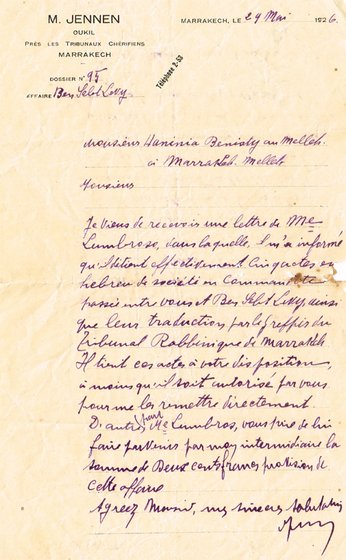 M. JENNEN
OUKIL
PRÈS LES TRIBUNAUX CHÉRIFIENS
MARRAKECH
MARRAKECH, LE 29 Mai 1926.
DOSSIER N° 95
AFFAIRE Ben Sebt Levy
Téléphone 2-53
Monsieur Haninia Benisty au Mellah
à Marrakech. Mellah
Monsieur
Je viens de recevoir une lettre de Me
Lumbroso, dans laquelle, il m'a informé
qu'il détient effectivement Cinq actes en
hebreu de société en Commandite
passée entre vous et Ben Sebt Levy, ainsi
que leur traduction par le greffier du
Tribunal Rabbinique de Marrakech
Il tient ces actes à votre disposition,
à moins qu'il soit autorisé par vous
pour me les remettre directement.
D'autre part Me Lumbroso, vous prie de lui
faire parvenir par mon intermidiaire la
somme de Deux cents francs provision de
cette affaire
Agreez Monsieur, mes sinceres salutations